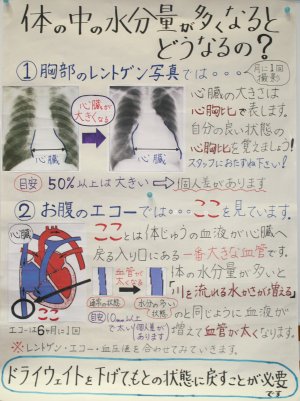 体の中の水分量が多くなると
どうなるの？
①胸部のレントゲン写真では・・・・
月に1回
撮影
心臓が
大きくなる
心臓
心臓
心臓の大きさは
心胸比で表します。
自分の良い状態の
心胸比を覚えましょう！
スタッフにおたずね下さい！
目安 50%以上は大きい⇨個人差があります
②お腹のエコーでは・・・ここを見ています。
心臓
ここ
エコーは6ヶ月に1回
ここ とは体じゅうの血液が心臓へ
戻る入り口にある一番大きな血管です。
血管が
太くなる
通常の状態
水分の多い
状態
目安
以上
で太い
個人差が
あります
体の水分量が多いと
「川を流れる水かさが増える」
のと同じように血液が
増えて血管が太くなります。
※レントゲン・エコー・血圧値を合わせてみていきます。
ドライウェイトを下げてもとの状態に戻すことが必要
です